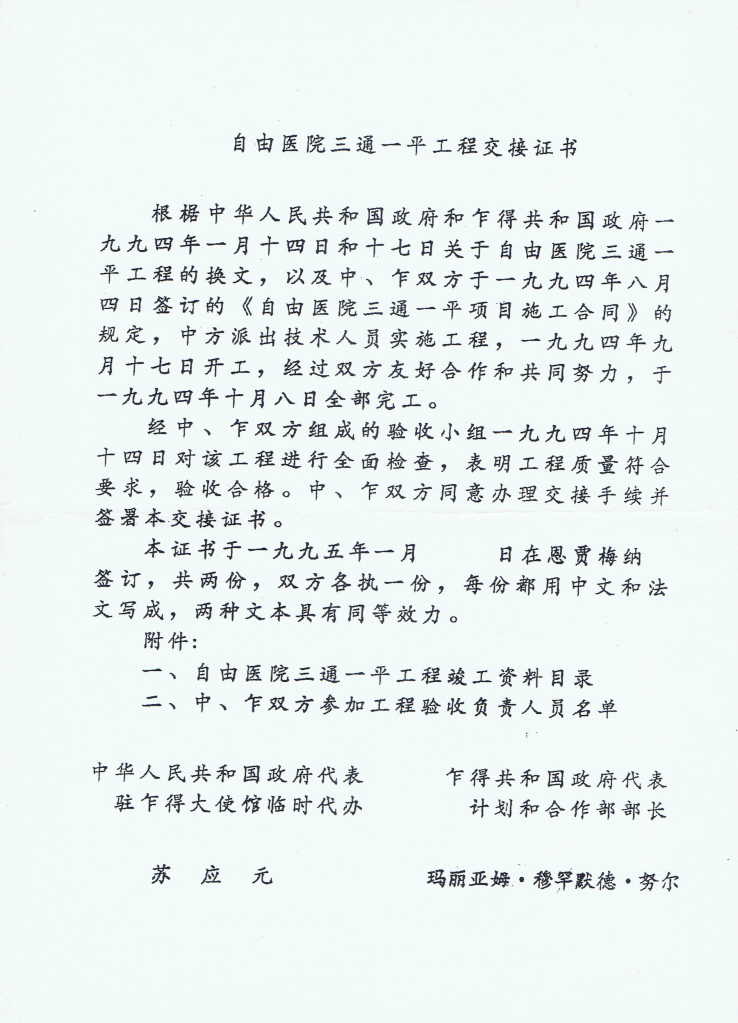 自由医院三通一平工程交接证书
根据中华人民共和国政府和乍得共和国政府一
九九四年一月十四日和十七日关于自由医院三通一
平工程的换文，以及中、乍双方于一九九四年八月
四日签订的《自由医院三通一平项目施工合同》的
规定，中方派出技术人员实施工程，一九九四年九
月十七日开工，经过双方友好合作和共同努力，于
一九九四年十月八日全部完工。
经中、乍双方组成的验收小组一九九四年十月
十四日对该工程进行全面检查，表明工程质量符合
要求，验收合格。中、乍双方同意办理交接手续并
签署本交接证书。
本证书于一九九五年一月 日在恩贾梅纳
签订，共两份，双方各执一份，每份都用中文和法
文写成，两种文本具有同等效力。
附件：
一、自由医院三通一平工程竣工资料目录
二、中、乍双方参加工程验收负责人员名单
中华人民共和国政府代表 乍得共和国政府代表
驻乍得大使馆临时代办 计划和合作部部长
苏应元 玛丽亚姆·穆罕默德·努尔